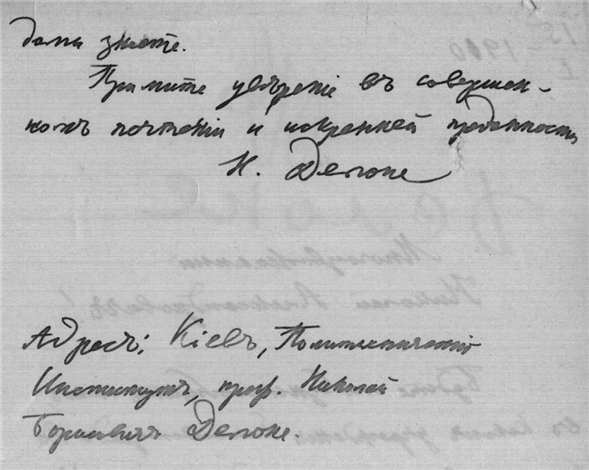 дами знаете.
Примите увѣренiе въ совершен-
номъ почтенiи и искренней преданности
Н. Делоне
Адресъ: Кiевъ, Политехническiй
Институтъ, проф. Николай
Борисовичъ Делоне.